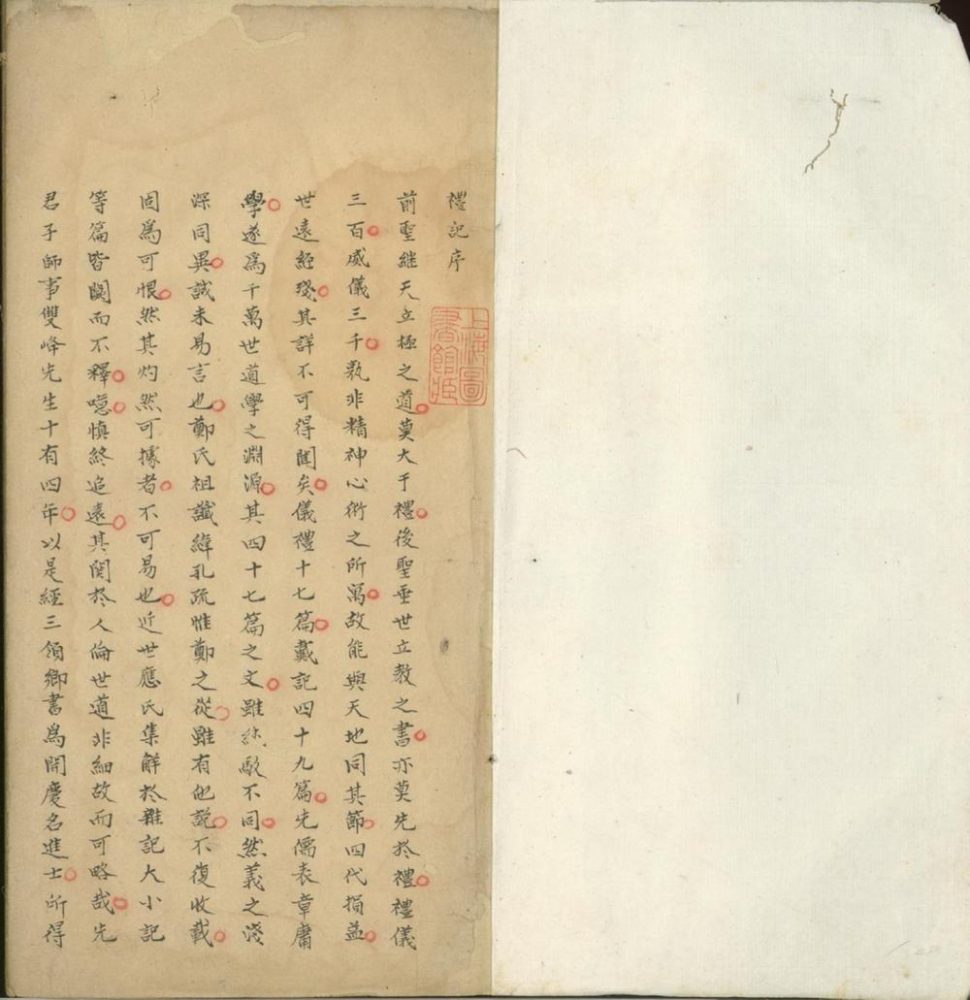 禮記序
上海圖書館藏
前聖継天立極之道莫大于禮後聖垂世立教之書亦莫先於禮禮儀
三百威儀三千孰非精神心術之所寓故能與天地同其節四代損益
世遠經殘其詳不可得聞矣儀禮十七篇戴記四十九篇先儒表章庸
學遂爲千萬世道學之淵源其四十七篇之文雖純駁不同然義之淺
深同異誠未易言也鄭氏祖讖緯孔疏惟鄭之從雖有他說不復收載
固爲可恨然其灼然可據者不可易也近世應氏集解於雜記大小記
等篇皆闕而不釋噫慎終追遠其関於人倫世道非細故而可略哉先
君子師事雙峰先生十有四年以是經三領鄉書爲開慶名進士所得